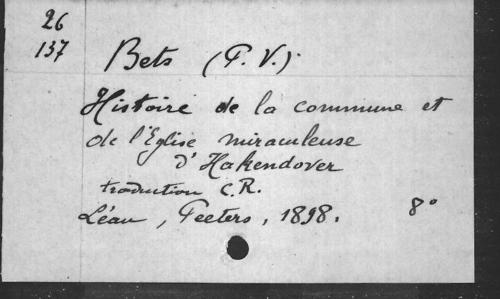 26
137
Bets (P. V.)
Histoire de la commune et
de l'Eglise miraculeuse
d'Hakendover
traduction C.R.
Léau, Peeters, 1898. 8°